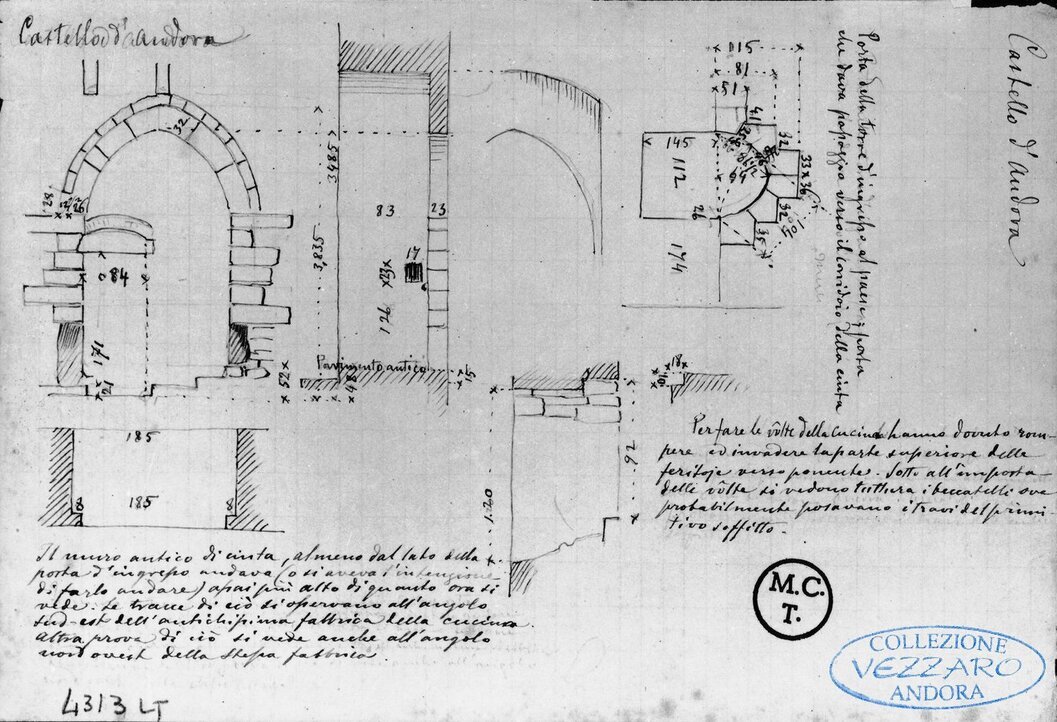 Castello d'Andora
32
28
26
84
171
21
52
185
185
3,485
3,835
83
23
17
23
126
Pavimento antico
48
15
115
81
51
41
32
145
112
64
33x36
32
26
35
174
Porta della torre d'ingresso al paese; porta
che dava passaggio verso il corridoio della cinta
Castello d'Andora
18
10
92
1.20
Per fare le vôlte della cucina hanno dovuto rom-
pere ed invadere la parte superiore delle
feritoje verso ponente. Sotto all'imposta
delle vôlte si vedono tuttora i beccatelli ove
probabilmente posavano i travi del primi-
tivo soffitto.
Il muro antico di cinta, almeno dal lato della
porta d'ingresso andava (o si aveva l'intenzione
di farlo andare) assai più alto di quanto ora si
vede. Le tracce di ciò si osservano all'angolo
sud-est dell'antichissima fabbrica della cucina.
Altra prova di ciò si vede anche all'angolo
nord ovest della stessa fabbrica.
M.C.
T.
COLLEZIONE
VEZZARO
ANDORA
4313 LT